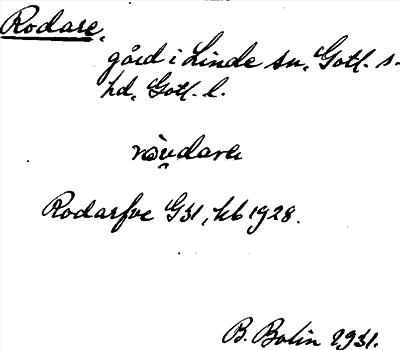 Rodare,
gård i Linde sn, Gotl. s.
hd, Gotl. l.
Rodarfve G31, hb 1928.
B. Bolin 1931.